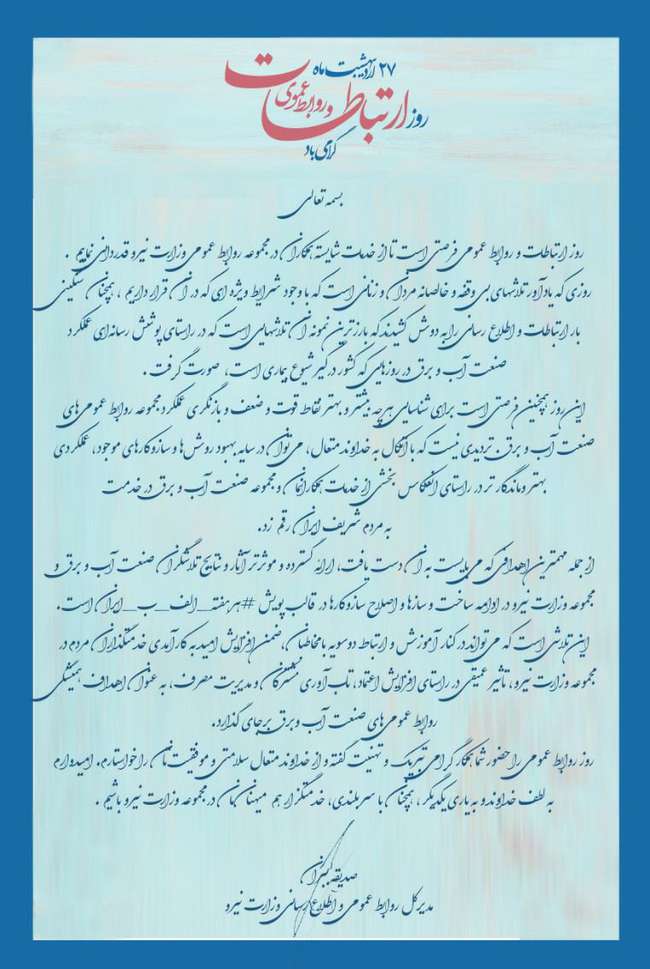 ۲۷ اردیبهشت ماه
روز ارتباطات
و روابط عمومی
گرامی باد
بسمه تعالی
روز ارتباطات و روابط عمومی فرصتی است تا از خدمات شایسته همکاران در مجموعه روابط عمومی وزارت نیرو قدردانی نماییم .
روزی که یادآور تلاشهای بی وقفه و خالصانه مردان و زنانی است که با وجود شرایط ویژه ای که در آن قرار داریم ، همچنان سنگینی
بار ارتباطات و اطلاع رسانی را به دوش کشیدند که بارزترین نمونه آن تلاشهایی است که در راستای پوشش رسانه‌ای عملکرد
صنعت آب و برق در روزهایی که کشور درگیر شیوع بیماری است ، صورت گرفت .
این روز همچنین فرصتی است برای شناسایی هرچه بیشتر و بهتر نقاط قوت و ضعف و بازنگری عملکرد مجموعه روابط عمومی های
صنعت آب و برق . تردیدی نیست که با اتکال به خداوند متعال ، می‌توان در سایه بهبود روش ها و سازوکارهای موجود ، عملکردی
بهتر و ماندگارتر در راستای انعکاس بخشی از خدمات همکارانمان و مجموعه صنعت آب و برق در خدمت
به مردم شریف ایران رقم زد .
از جمله مهمترین اهدافی که می بایست به آن دست یافت ، ارائه گسترده و موثرتر آثار و نتایج تلاشگران صنعت آب و برق و
مجموعه وزارت نیرو در ادامه ساخت و سازها و اصلاح سازوکارها در قالب پویش #هرهفته_الف_ب_ایران است .
این تلاشی است که می‌تواند در کنار آموزش و ارتباط دوسویه با مخاطبان ، ضمن افزایش امید به کارآمدی خدمتگذاران مردم در
مجموعه وزارت نیرو ، تاثیر عمیقی در راستای افزایش اعتماد ، تاب آوری مشترکان و مدیریت مصرف ، به عنوان اهداف همیشگی
روابط عمومی های صنعت آب وبرق برجای گذارد .
روز روابط عمومی را حضور شما همکار گرامی تبریک و تهنیت گفته و از خداوند متعال سلامتی و موفقیت تان را خواستارم . امیدوارم
به لطف خداوند و به یاری یکدیگر ، همچنان با سربلندی ، خدمتگزار هم میهنان مان در مجموعه وزارت نیرو باشیم .
صدیقه ببران
مدیرکل روابط عمومی و اطلاع رسانی وزارت نیرو